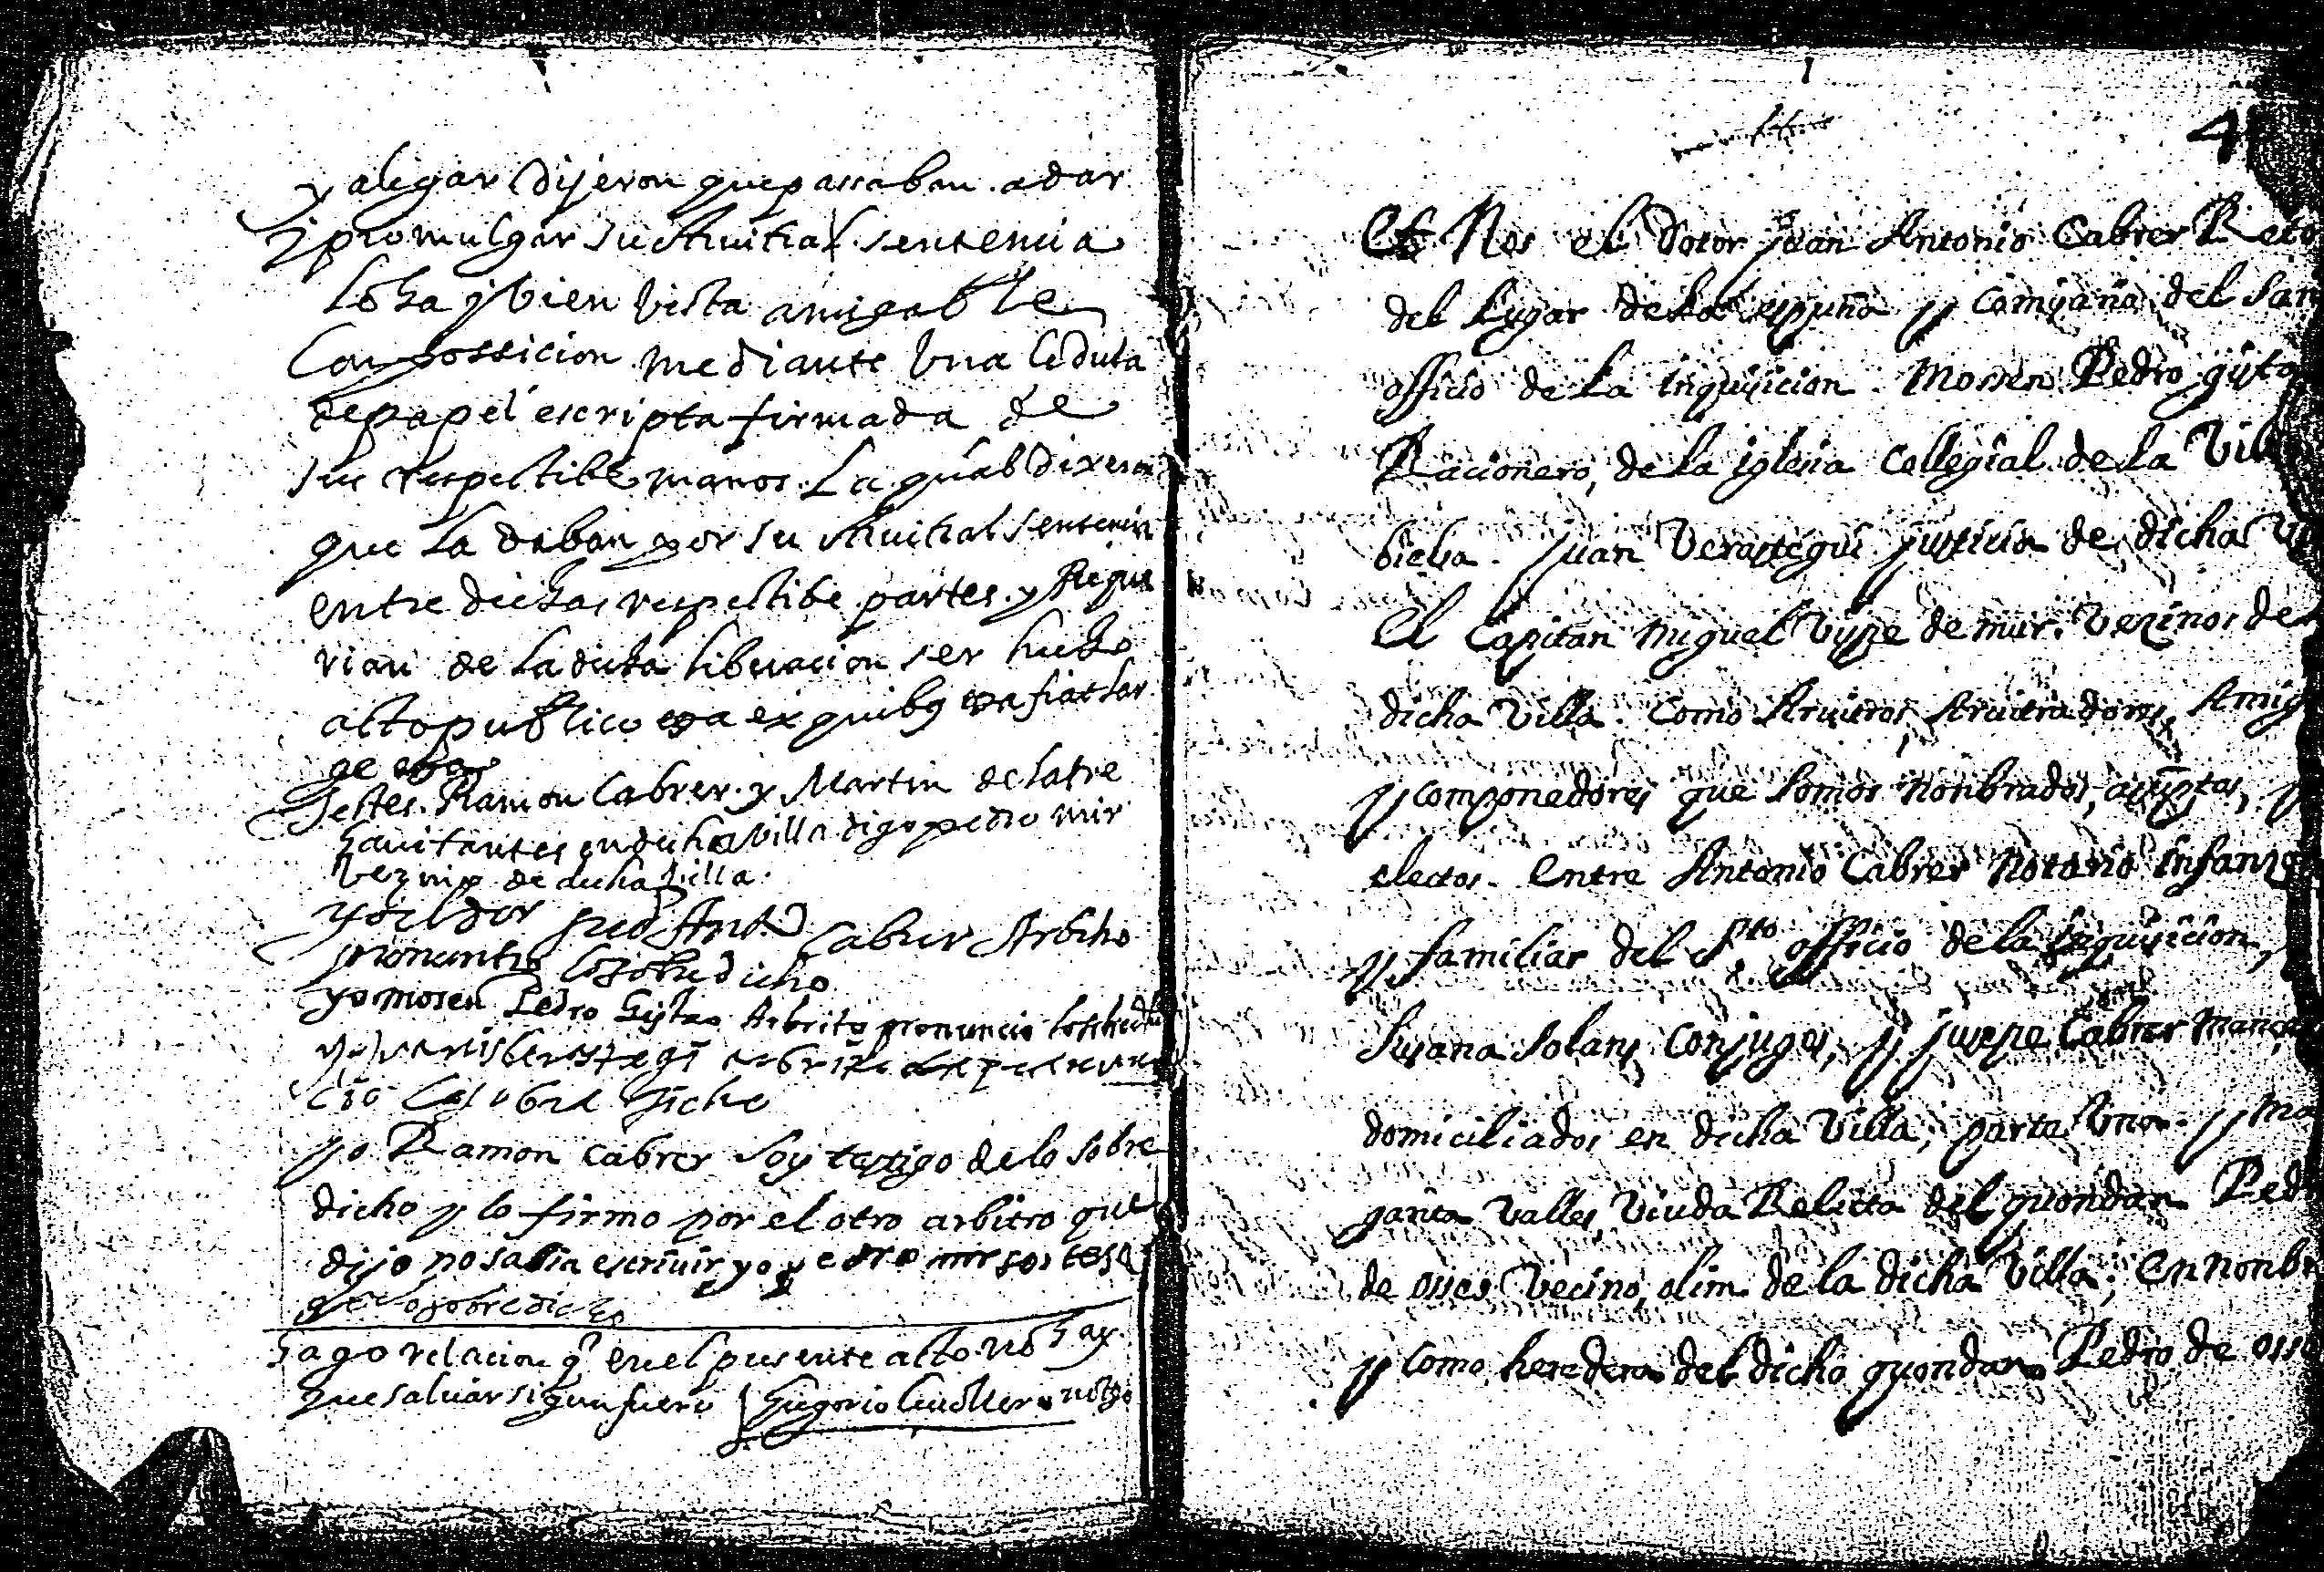 y alegar dijeron que passaban a dar
y promulgar su Arvitral sentencia
loha y bien vista amigable
Compossicion mediante una Cedula
de papel escripta firmada de
sus respectibe manos. La qual dixeron
que la daban por su Arvitral sentencia
entre dichas respectibe partes. y Requi
rian de la dicha libracion ser hecho
acto publico ex quibus fiat lar
ge
Testes. Ramon Cabrer. y Martin de latre
havitantes en dicha villa digo pedro mir
vezino de dicha villa.
yo el dor Juo Anto Cabrer Arbitro
pronuntio lo sobre dicho
yo mosen Pedro Gistao Arbitro pronuncio lo sobredicho
yo Juan
cio lo sobre dicho
yo Ramon Cabrer soy testigo de lo sobre
dicho y lo firmo por el otro arbitro que
dijo no sabia escriuir yo pedro mir soi testi
go de lo sobredicho
Hago relacion q̃ en el presente acto no hay
que saluar sigun fuero Gregorio notro
4
Nos el Dotor Juan Antonio Cabrer Reto
del lugar de la Espuña y Comisario del San
officio de la Inquisicion. Mossen Pedro gista
Racionero, de la iglesia Collegial de la Vill
bielsa. Juan Verastegui justicia de dicha vi
El Capitan Miguel de mur. Vezinos de
dicha Villa. Como Arvitros, Arvitradores, Amig
y Componedores que somos nonbrados, aceptos, y
electos. Entre Antonio Cabrer Notario Infanzo
y familiar del Sto officio de la Inquisicion,
Susana Solans Conjuges, y Jusepe Cabrer Mance
domiciliados en dicha Villa, parte Vna. y Ma
garita Valles Viuda Relicta del quondam Ped
de osses Vecino, olim de la dicha Villa; En nonbr
y como heredera del dicho quondam Pedro de oss